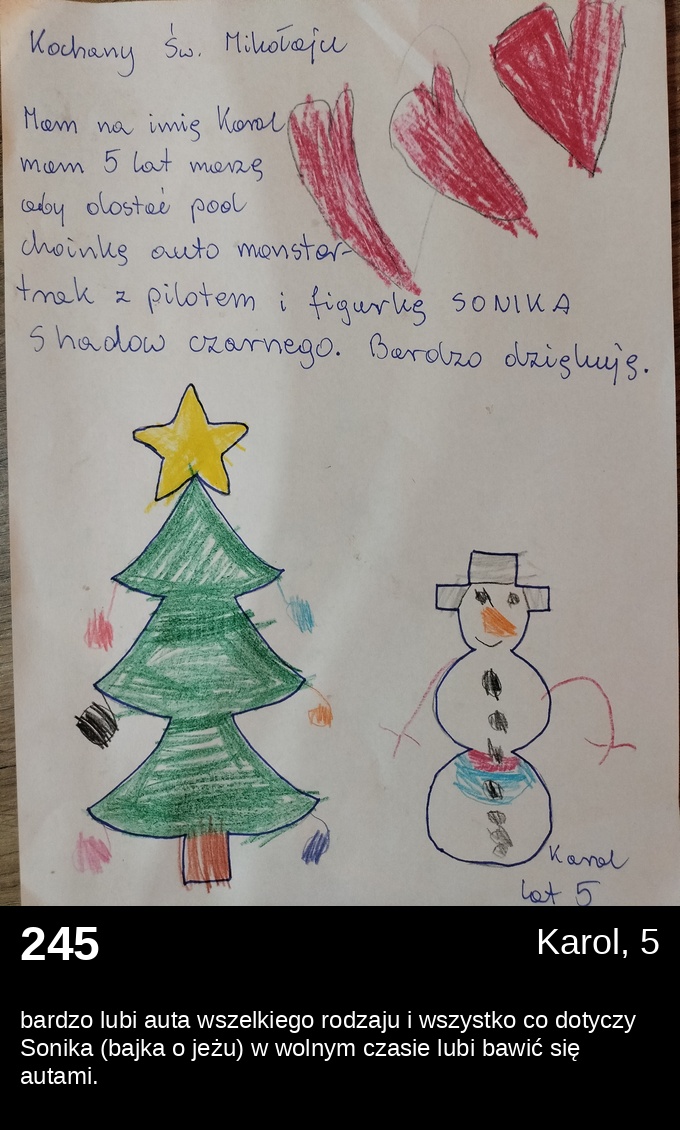 Kochany Św. Mikołaju
Mam na imię Karol
mam 5 lat marzę
aby dostać pod
choinkę auto monster-
truk z pilotem i figurkę SONIKA
Shadow czarnego. Bardzo dziękuję.
Karol
lat 5
245
Karol, 5
bardzo lubi auta wszelkiego rodzaju i wszystko co dotyczy
Sonika (bajka o jeżu) w wolnym czasie lubi bawić się
autami.